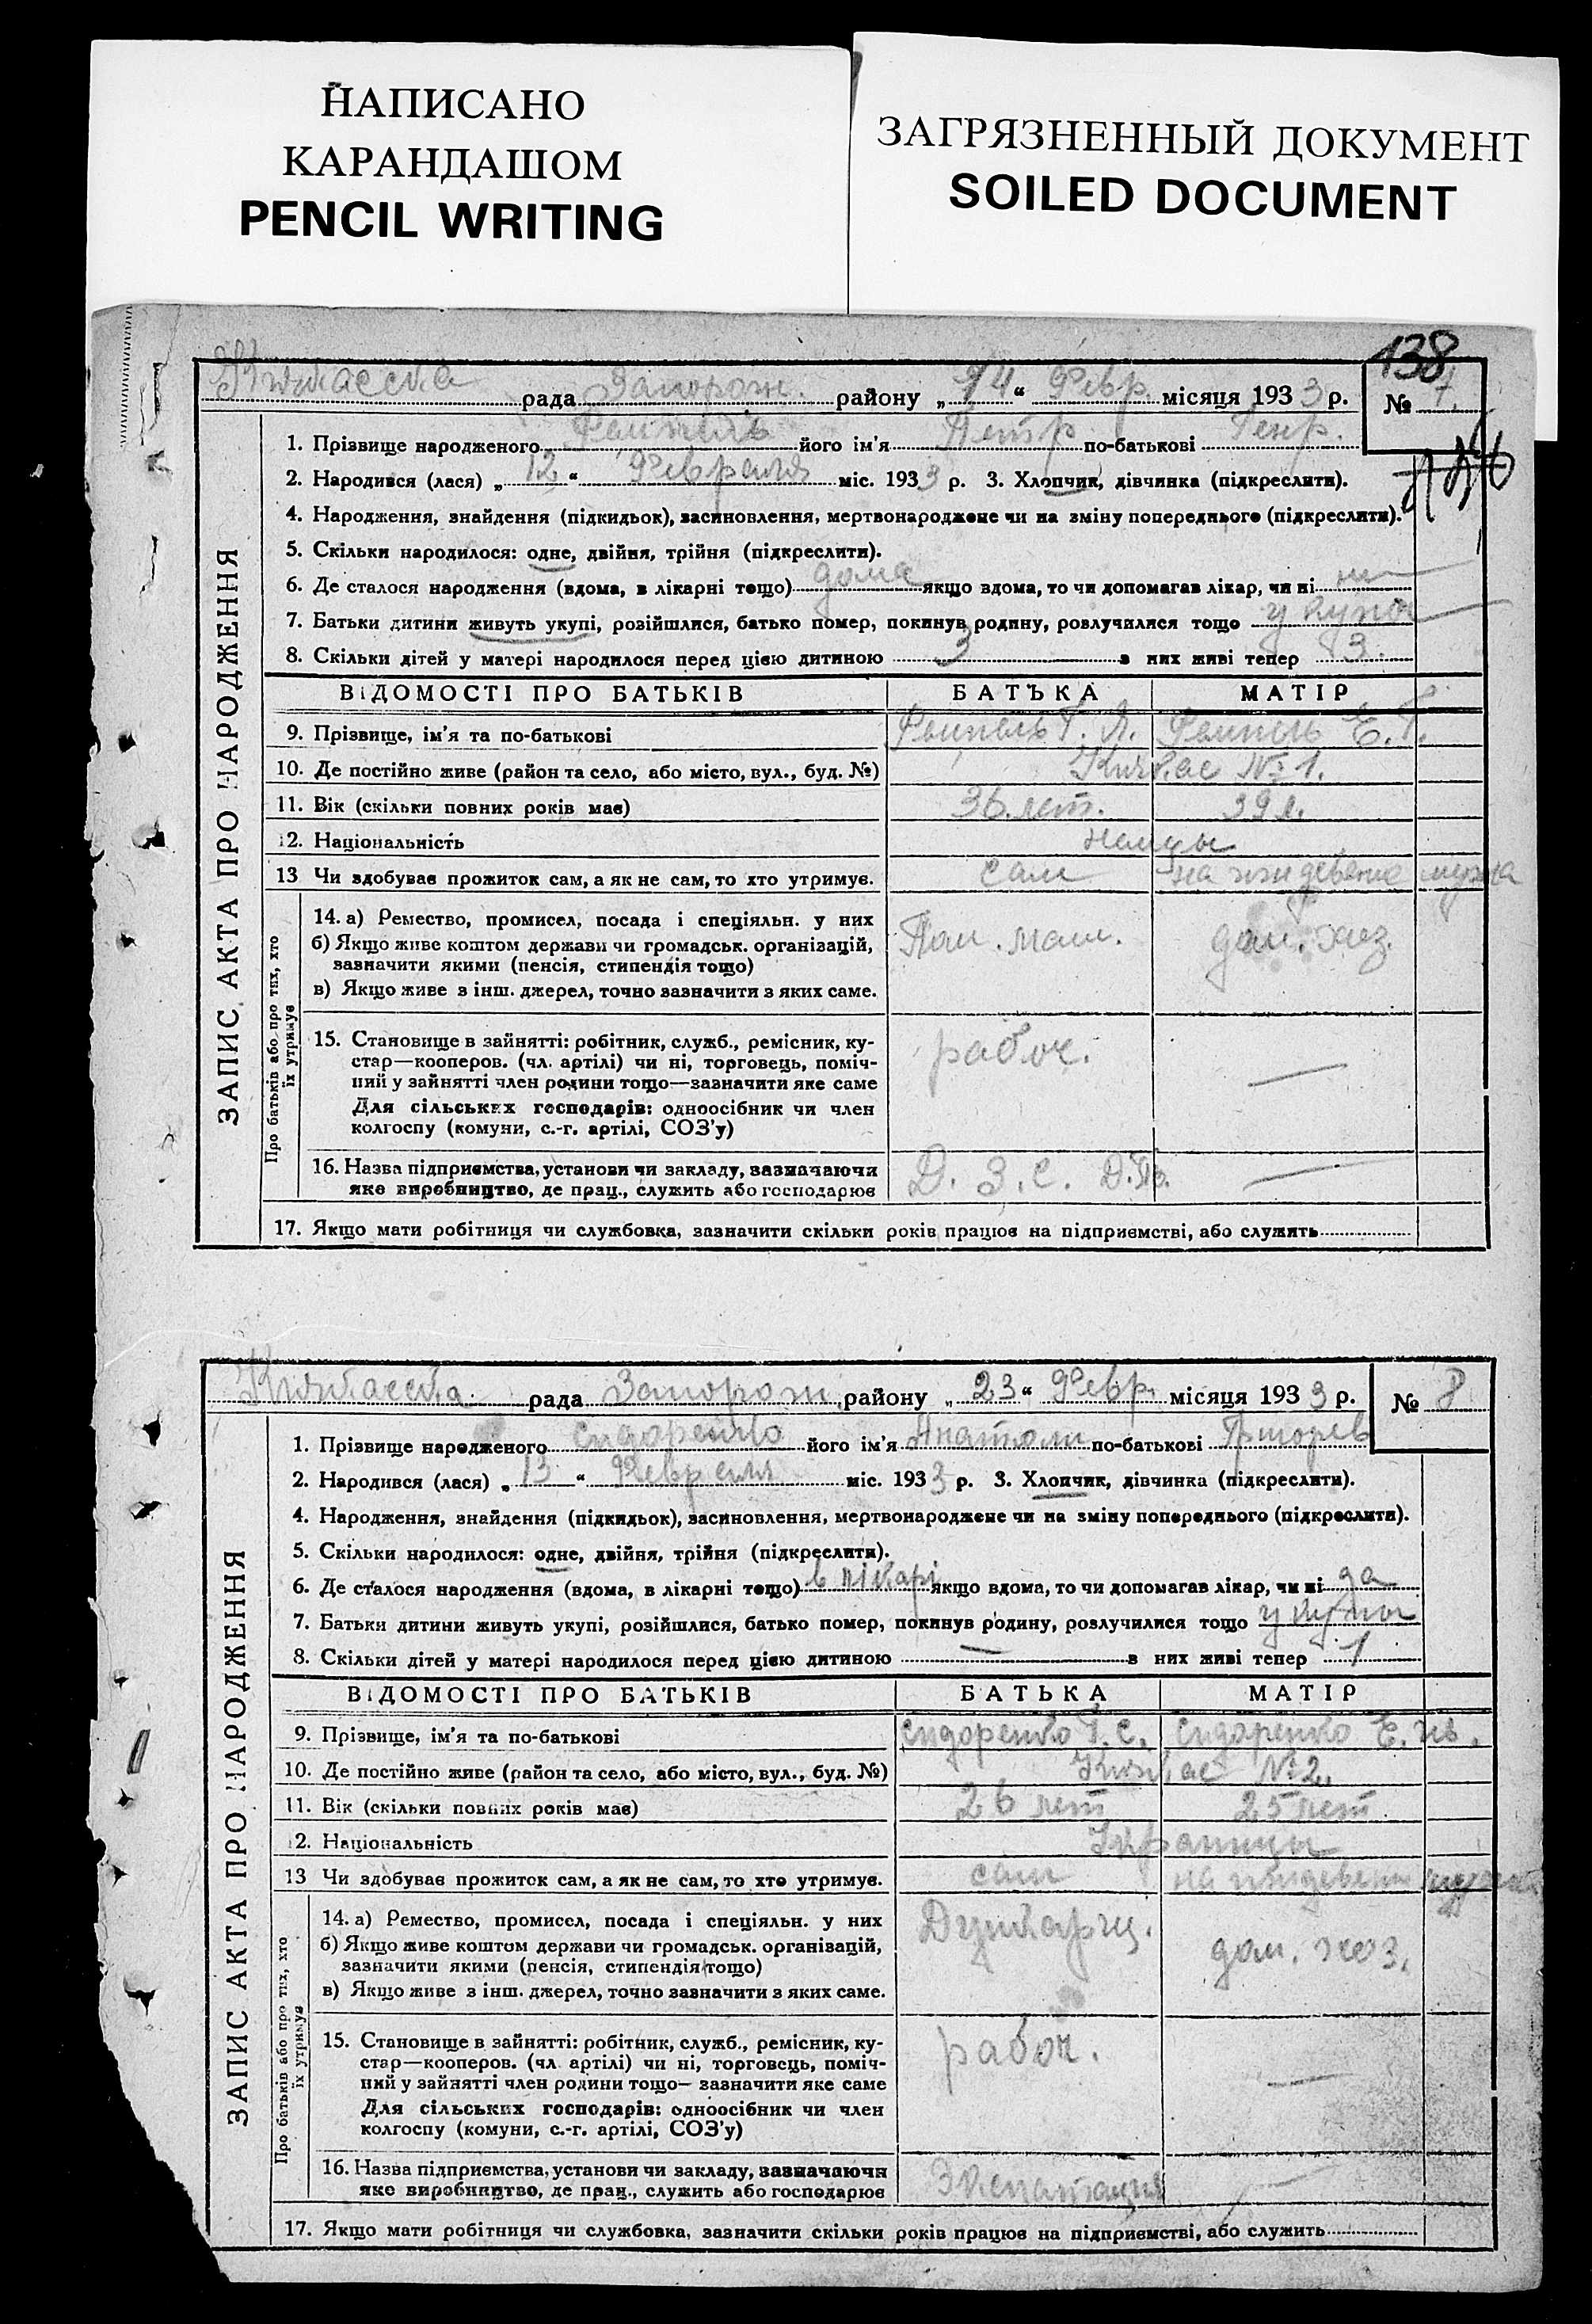 НАПИСАНО
КАРАНДАШОМ
PENCIL WRITING
ЗАГРЯЗНЕННЫЙ ДОКУМЕНТ
SOILED DOCUMENT
138
рада Запорож. району „14“ Февр. місяця 1933 р. № 7.
1. Прізвище народженого його ім'я Петр по-батькові Генр.
2. Народився (лася) „12“ Февраля міс. 1933 р. 3. Хлопчик, дівчинка (підкреслити).
4. Народження, знайдення (підкидьок), засиновлення, мертвонароджене чи на зміну попереднього (підкреслити).
5. Скільки народилося: одне, двійня, трійня (підкреслити).
6. Де сталося народження (вдома, в лікарні тощо) дома якщо вдома, то чи допомагав лікар, чи ні
7. Батьки дитини живуть укупі, розійшлися, батько помер, покинув родину, розлучилися тощо
8. Скільки дітей у матері народилося перед цією дитиною 3 з них живі тепер 3.
ЗАПИС АКТА ПРО НАРОДЖЕННЯ
ВІДОМОСТІ ПРО БАТЬКІВ БАТЬКА МАТІР
9. Прізвище, ім'я та по-батькові
10. Де постійно живе (район та село, або місто, вул., буд. №) Кичкас № 1.
11. Вік (скільки повних років має) 36 лет. 39 л.
12. Національність немцы
13 Чи здобував прожиток сам, а як не сам, то хто утримує. сам на иждевение мужа
Про батьків або про тих, хто їх утримує
14. а) Ремество, промисел, посада і спеціяльн. у них
б) Якщо живе коштом держави чи громадськ. організацій,
зазначити якими (пенсія, стипендія тощо)
в) Якщо живе з інш. джерел, точно зазначити з яких саме.
Пом. маш. дом. хоз.
15. Становище в зайнятті: робітник, служб., ремісник, ку-
стар—кооперов. (чл. артілі) чи ні, торговець, поміч-
ний у зайнятті член родини тощо—зазначити яке саме
Для сільських господарів: одноосібник чи член
колгоспу (комуни, с.-г. артілі, СОЗ'у)
рабоч. —
16. Назва підприємства, установи чи закладу, зазначаючи
яке виробництво, де прац., служить або господарює
Д. З. С. —
17. Якщо мати робітниця чи службовка, зазначити скільки років працює на підприємстві, або служить
рада Запорож. району „23“ Февр. місяця 1933 р. № 8
1. Прізвище народженого Сидоренко його ім'я Анатоли по-батькові Григорев
2. Народився (лася) „13“ Февраля міс. 1933 р. 3. Хлопчик, дівчинка (підкреслити).
4. Народження, знайдення (підкидьок), засиновлення, мертвонароджене чи на зміну попереднього (підкреслити).
5. Скільки народилося: одне, двійня, трійня (підкреслити).
6. Де сталося народження (вдома, в лікарні тощо) в лікарі якщо вдома, то чи допомагав лікар, чи ні да
7. Батьки дитини живуть укупі, розійшлися, батько помер, покинув родину, розлучилися тощо
8. Скільки дітей у матері народилося перед цією дитиною — з них живі тепер 1
ЗАПИС АКТА ПРО НАРОДЖЕННЯ
ВІДОМОСТІ ПРО БАТЬКІВ БАТЬКА МАТІР
9. Прізвище, ім'я та по-батькові Сидоренко Г. С. Сидоренко Е.
10. Де постійно живе (район та село, або місто, вул., буд. №) Кичкас № 2.
11. Вік (скільки повних років має) 26 лет 25 лет
12. Національність Украинцы
13 Чи здобував прожиток сам, а як не сам, то хто утримує. сам на иждевени мужа
Про батьків або про тих, хто їх утримує
14. а) Ремество, промисел, посада і спеціяльн. у них
б) Якщо живе коштом держави чи громадськ. організацій,
зазначити якими (пенсія, стипендія тощо)
в) Якщо живе з інш. джерел, точно зазначити з яких саме.
дом. хоз.
15. Становище в зайнятті: робітник, служб., ремісник, ку-
стар—кооперов. (чл. артілі) чи ні, торговець, поміч-
ний у зайнятті член родини тощо— зазначити яке саме
Для сільських господарів: одноосібник чи член
колгоспу (комуни, с.-г. артілі, СОЗ'у)
рабоч. —
16. Назва підприємства, установи чи закладу, зазначаючи
яке виробництво, де прац., служить або господарює
—
17. Якщо мати робітниця чи службовка, зазначити скільки років працює на підприємстві, або служить